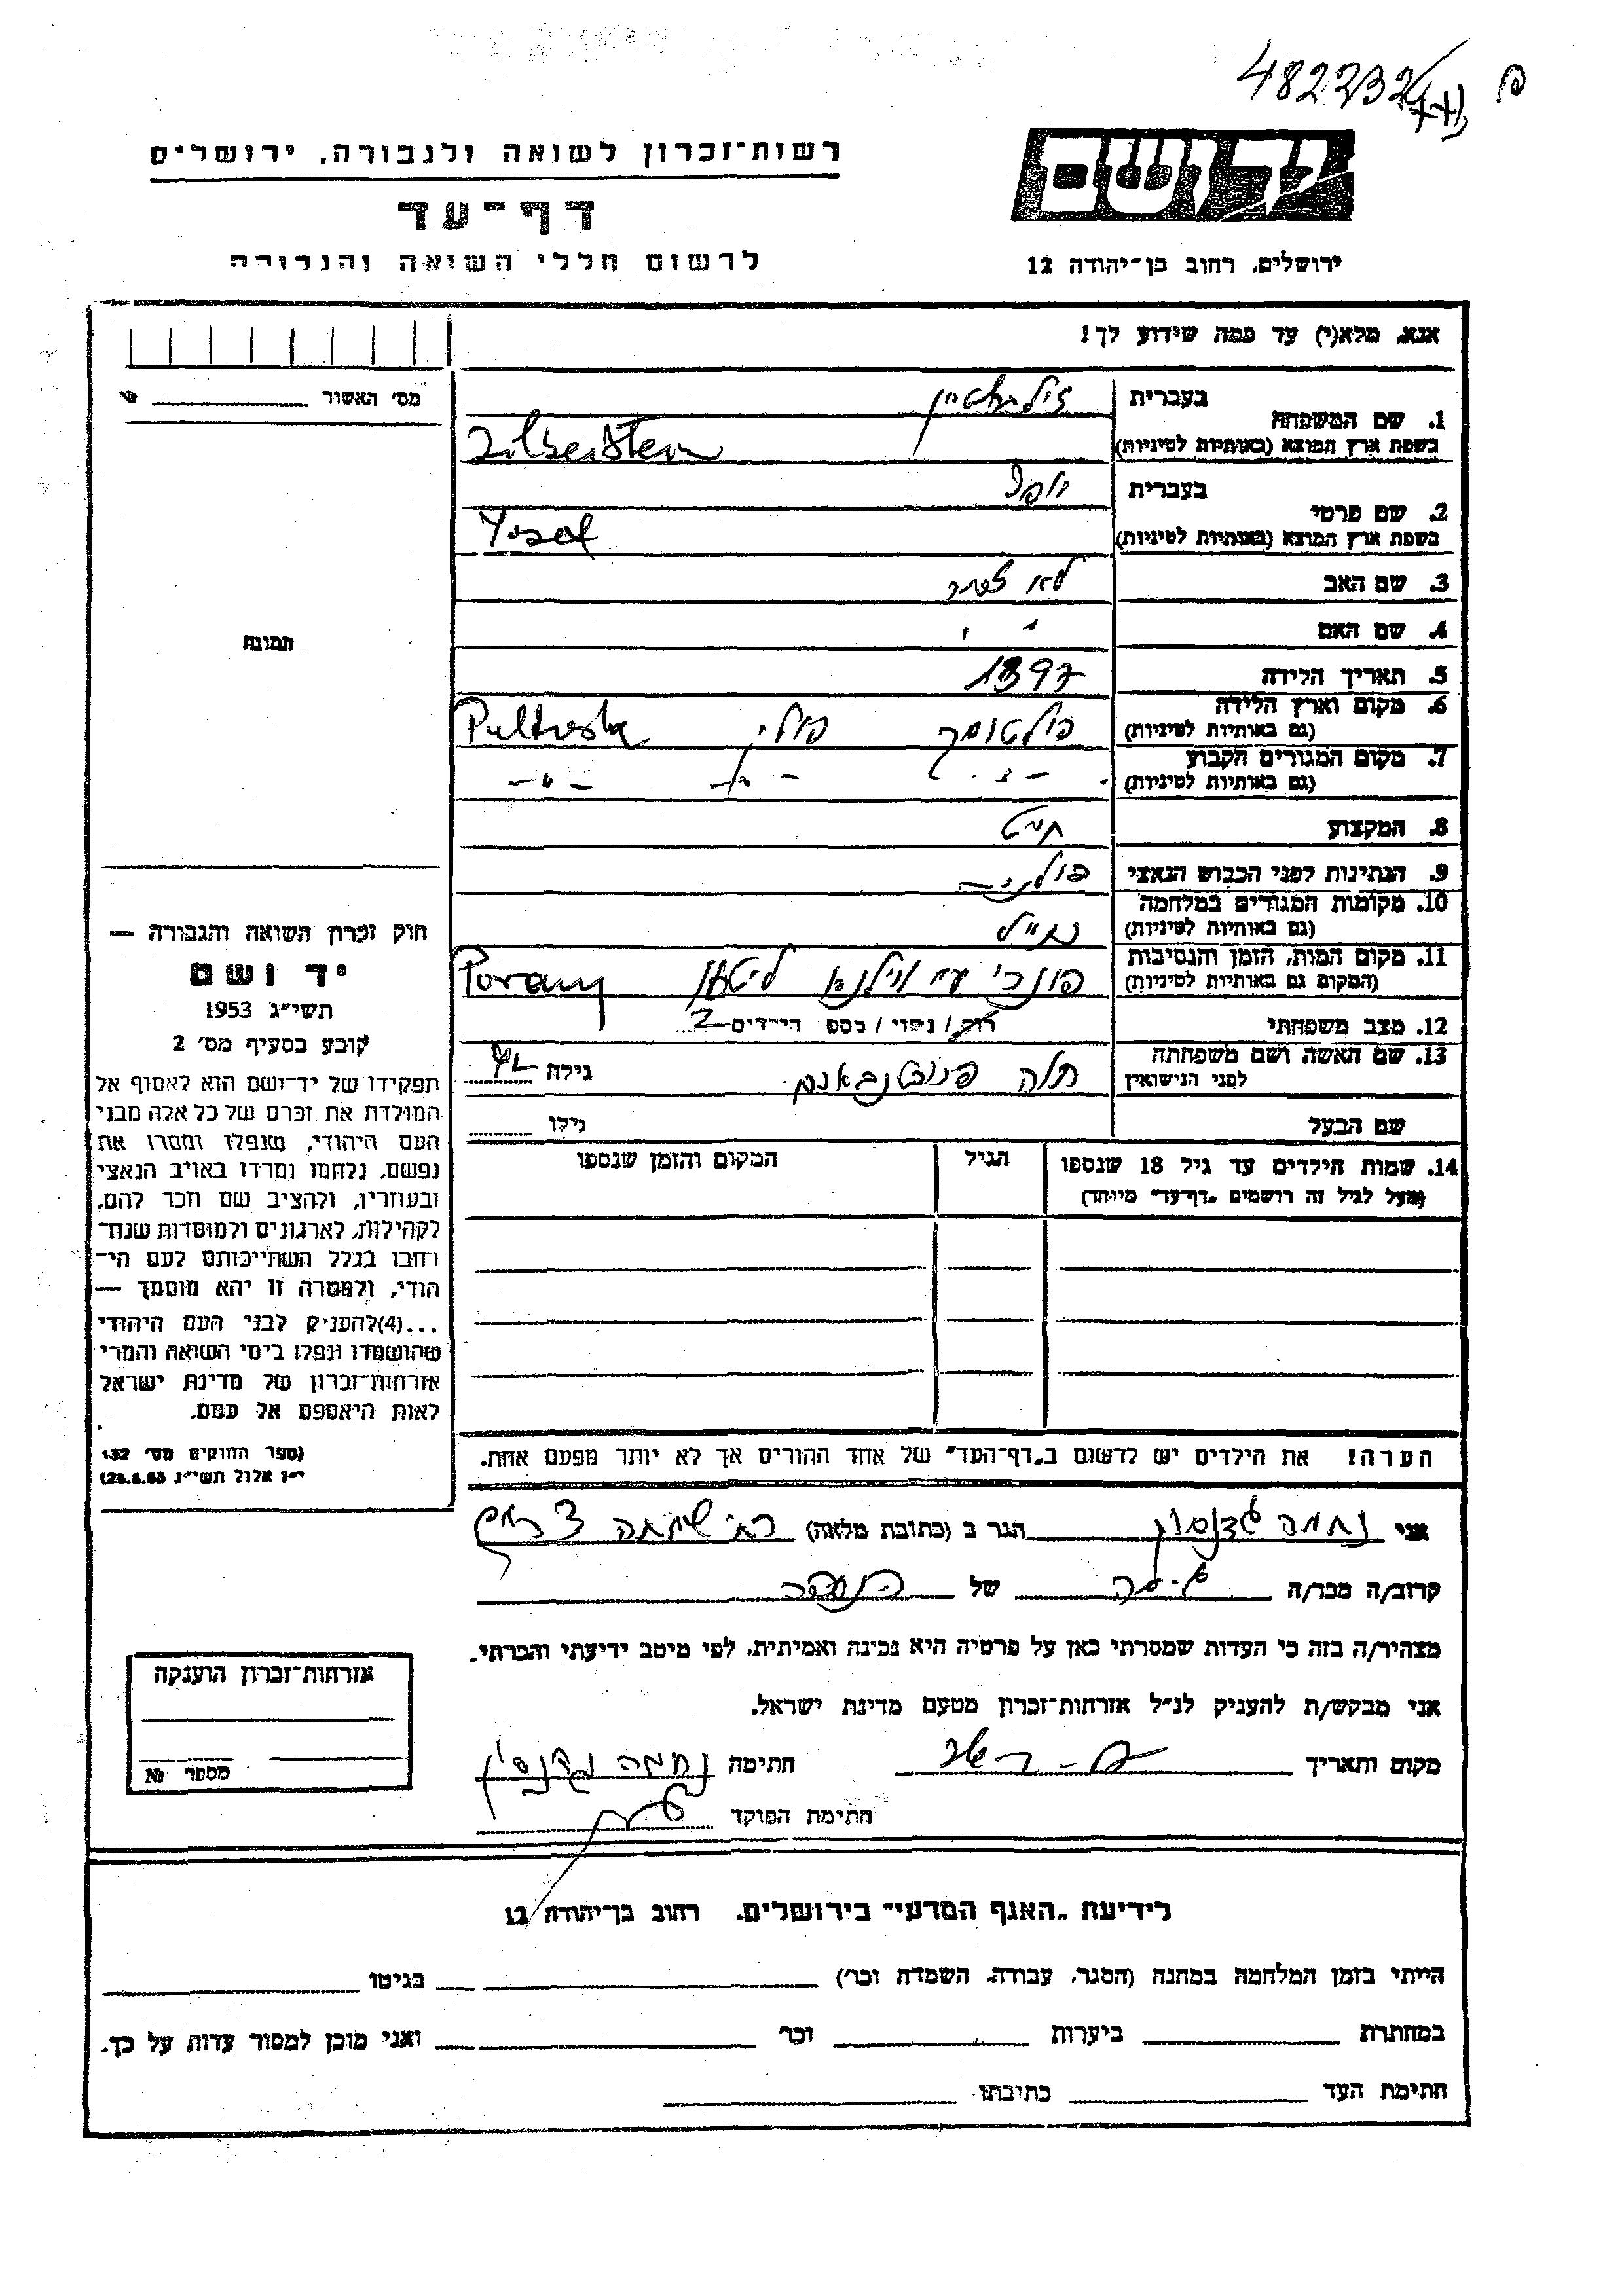 482232
רשות־זכרון לשואה ולגבורה, ירושלים
יד ושם
דף־עד
לרשום חללי השואה והגבורה
ירושלים, רחוב בן־יהודה 12
אנא, מלא(י) עד כמה שידוע לך!
מס׳ האשור
1. שם המשפחה
בעברית זילברשטיין
בשפת ארץ המוצא (באותיות לטיניות) Zilberstein
2. שם פרטי
בעברית יוסף
בשפת ארץ המוצא (באותיות לטיניות) Yosef
3. שם האב לא זכור
4. שם האם " "
5. תאריך הלידה 1897
6. מקום וארץ הלידה
(גם באותיות לטיניות) פולטוסק פולין Pultusk
7. מקום המגורים הקבוע
(גם באותיות לטיניות) - " - - " - - " -
8. המקצוע חייט
9. הנתינות לפני הכבוש הנאצי פולנית
10. מקומות המגורים במלחמה
(גם באותיות לטיניות) כנ"ל
11. מקום המות, הזמן והנסיבות
(המקום גם באותיות לטיניות) פונרי על יד וילנא ליטא Ponary
12. מצב משפחתי רווק / נשוי / מספר הילדים 2
13. שם האשה ושם משפחתה
לפני הנישואין גילה 42
שם הבעל גילו
14. שמות הילדים עד גיל 18 שנספו
(מעל לגיל זה רושמים "דף־עד" מיוחד)
הגיל
המקום והזמן שנספו
הערה! את הילדים יש לרשום ב"דף־העד" של אחד ההורים אך לא יותר מפעם אחת.
תמונה
חוק זכרון השואה והגבורה —
יד ושם
תשי"ג 1953
קובע בסעיף מס׳ 2
תפקידו של יד־ושם הוא לאסוף אל
המולדת את זכרם של כל אלה מבני
העם היהודי, שנפלו ומסרו את
נפשם, נלחמו ומרדו באויב הנאצי
ובעוזריו, ולהציב שם וזכר להם,
לקהילות, לארגונים ולמוסדות שנח־
רבו בגלל השתייכותם לעם הי־
הודי, ולמטרה זו יהא מוסמך —
...(4) להעניק לבני העם היהודי
שהושמדו ונפלו בימי השואה והמרי
אזרחות־זכרון של מדינת ישראל
לאות היאספם אל עמם.
(ספר החוקים מס׳ 132
י"ז אלול תשי"ג 28.8.53)
אני נחמה הגר ב (כתובת מלאה)
קרוב/ה מכר/ה גיסה של הנספה
מצהיר/ה בזה כי העדות שמסרתי כאן על פרטיה היא נכונה ואמיתית, לפי מיטב ידיעתי והכרתי.
אני מבקש/ת להעניק לנ"ל אזרחות־זכרון מטעם מדינת ישראל.
מקום ותאריך חתימה נחמה
חתימת הפוקד
אזרחות־זכרון הוענקה
מספר №
לידיעת "האגף המדעי" בירושלים, רחוב בן־יהודה 12
הייתי בזמן המלחמה במחנה (הסגר, עבודה, השמדה וכו׳) בגיטו
במחתרת ביערות וכו׳ ואני מוכן למסור עדות על כך.
חתימת העד כתובתו